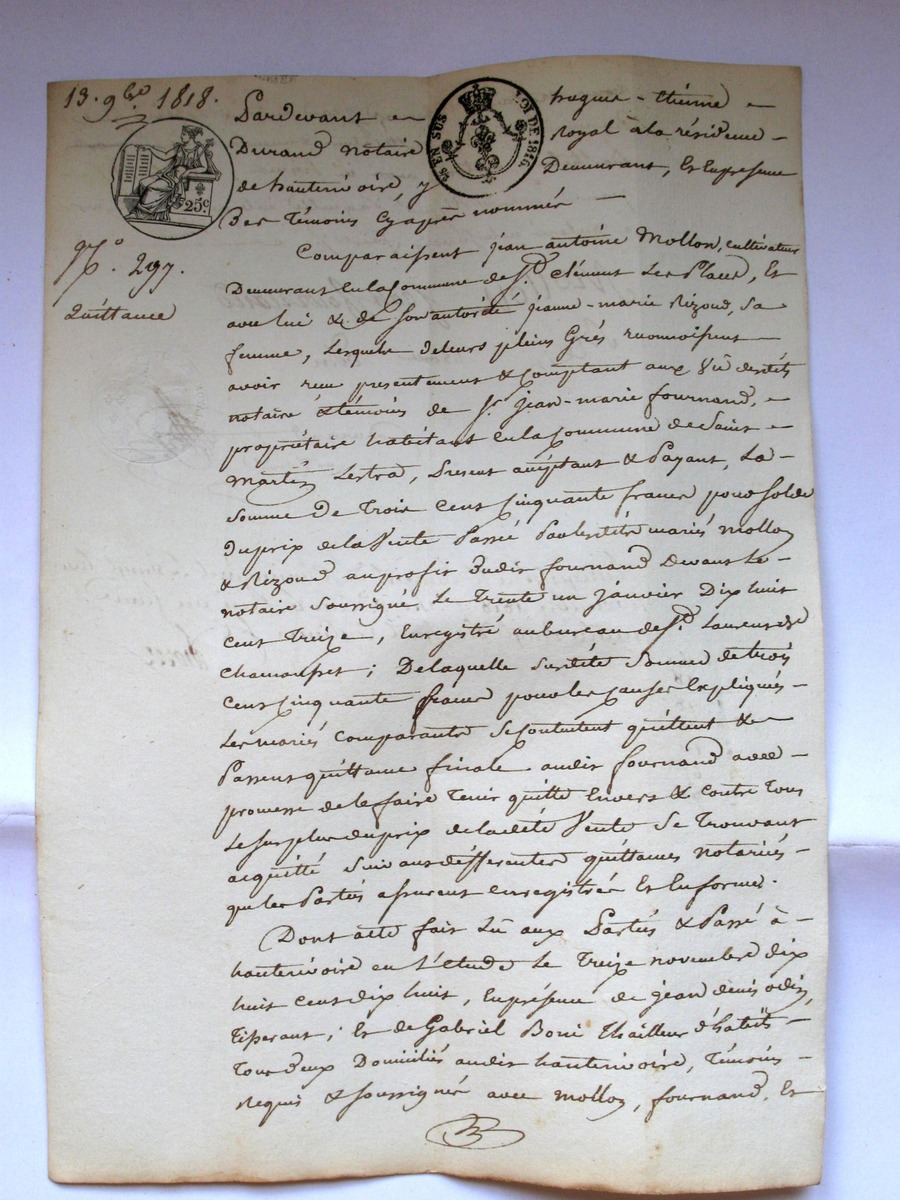 13. 9bre 1818.
25c
N°. 297.
Quittance
¼ EN SUS LOI DE 1816.
Pardevant hugues-étienne
Durand notaire royal à la résidence
de hauterivoire, y Demeurant, Et En présence
Des Témoins Cy après nommés
Comparaissent jean antoine Mollon, cultivateur
Demeurant En la Commune de St. Clément Les Places, Et
avec lui & de Son autorité jeanne-marie Rizoud, Sa
femme, Lesquels de leurs pleins Grés reconnoissent
avoir reçu présentement & Comptant aux Vû desdits
notaire & témoins de Sr. jean-marie fournand,
propriétaire habitant En la Commune de Saint
Martin Lestra, Présent acceptant & Payant, La
Somme De Trois Cent Cinquante francs pour Solde
Du prix de la Vente Passée Par lesdits mariés Mollon
& Rizoud au profit Dudit fournand Devant Le
notaire Soussigné Le Trente un Janvier Dix huit
Cent Treize, Enregistré au bureau de St. Laurent de
Chamousset; De laquelle Susdite Somme de trois
Cent Cinquante francs pour les Causes Expliqués
Les mariés Comparants Se Contentent quittent &
Passent quittance finale audit fournand avec
promesse de le faire Tenir quitte Envers & Contre Tous
Le Surplus du prix de la dite Vente Se Trouvant
acquitté Suivant différentes quittances notariés
que les Parties assurent enregistrées Et En formes.
Dont acte fait Lû aux Parties & Passé à
hauterivoire en L'étude Le Treize novembre dix
huit cent dix huit, En présence de jean denis odin,
Tisserant; Et de Gabriel Boni Thailleur d'habits
Tous deux Domiciliés audit hauterivoire, Témoins
Requis & Soussignés avec Mollon, fournand, Et